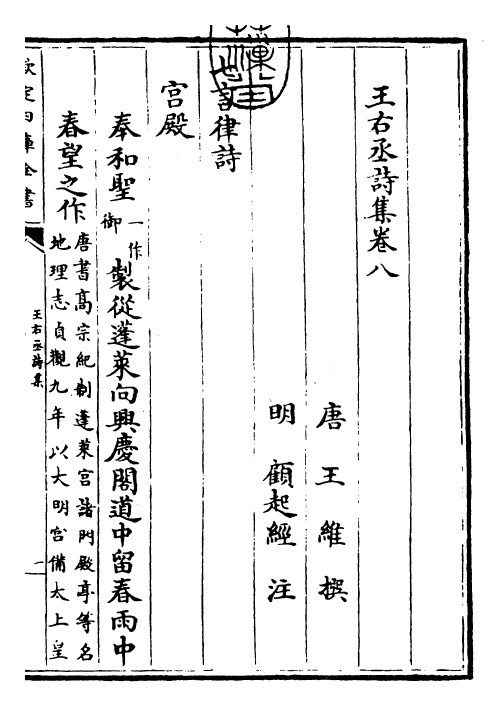 王右丞詩集卷八
唐 王維 撰
明 顧起經 注
七言律詩
宮殿
奉和聖一作御製從蓬萊向興慶閣道中留春雨中
春望之作唐書高宗紀制蓬萊宮諸門殿亭等名
地理志貞觀九年以大明宮備太上皇
王右丞詩集
一
欽定四庫全書